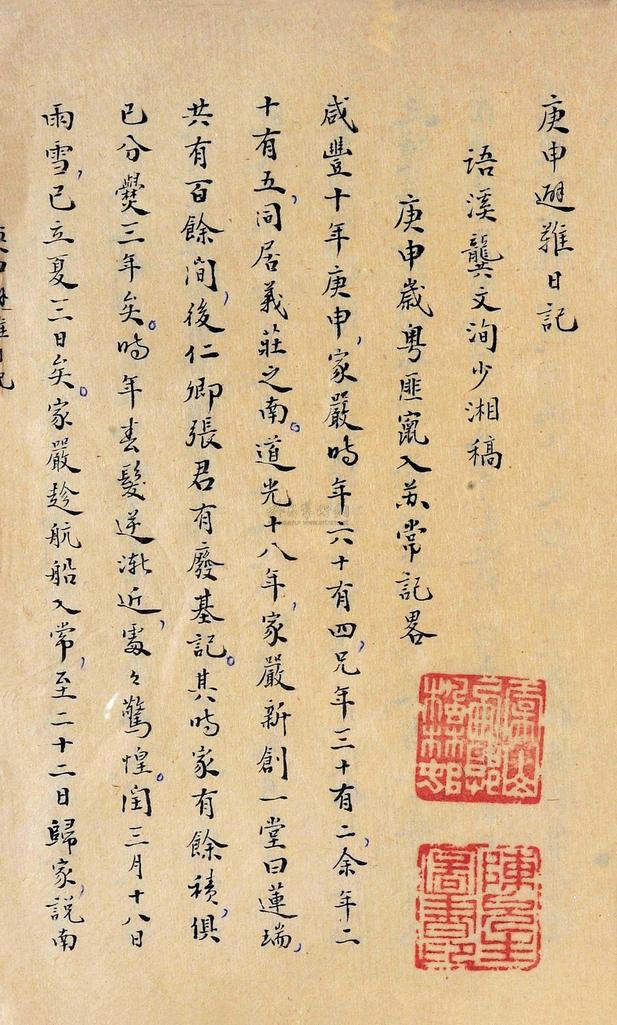 庚申避難日記
語溪龔文洵少湘稿
庚申歲粵匪竄入蘇常記畧
咸豐十年庚申,家嚴時年六十有四,兄年三十有二,余年二
十有五,同居義莊之南。道光十八年,家嚴新創一堂曰蓮瑞,
共有百餘間,後仁卿張君有廢基記。其時家有餘積,俱
已分爨三年矣。時年春髮逆漸近,處々驚惶。閏三月十八日
雨雪,已立夏三日矣。家嚴趁航船入常,至二十二日歸家,説南